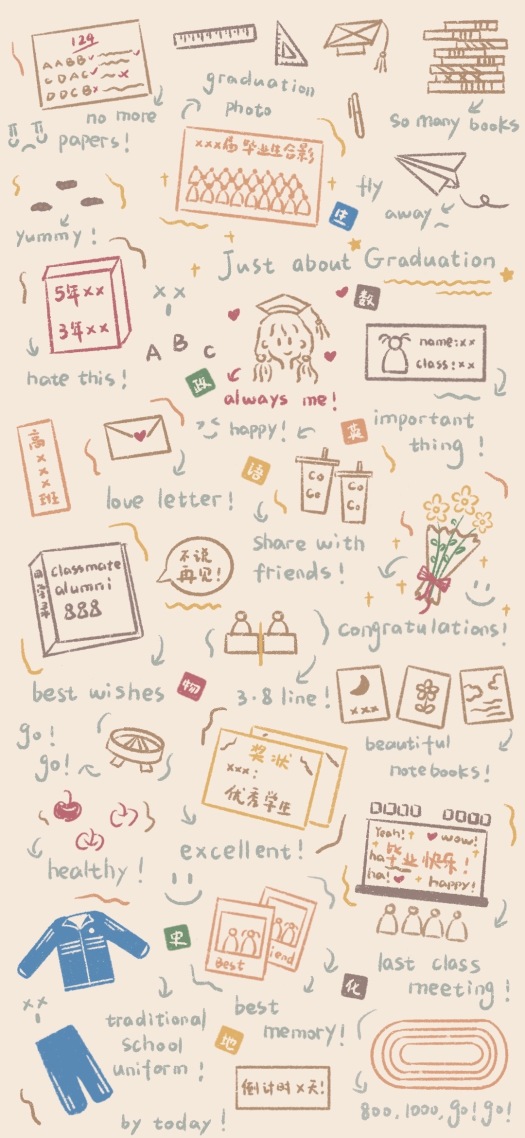 124
AABB
CDAC
DDCB
no more
papers!
graduation
photo
so many books
xxx届毕业生合影
fly
away~
生
yummy!
Just about Graduation
5年xx
3年xx
hate this!
A B C
数
政
always me!
happy!
name:xx
class:xx
英
important
thing!
高xxxx班
love letter!
语
Co
Co
Co
Co
share with
friends!
classmate
alumni
888
不说
再见!
best wishes
物
3·8 line!
congratulations!
xxx
beautiful
notebooks!
go!
go!
奖状
xxx:
优秀学生
excellent!
healthy!
Yeah! wow!
ha 毕业快乐!
ha! happy!
last class
meeting!
史
Best
riend
best
memory!
化
地
traditional
school
uniform!
by today!
倒计时x天!
800,1000,go!go!